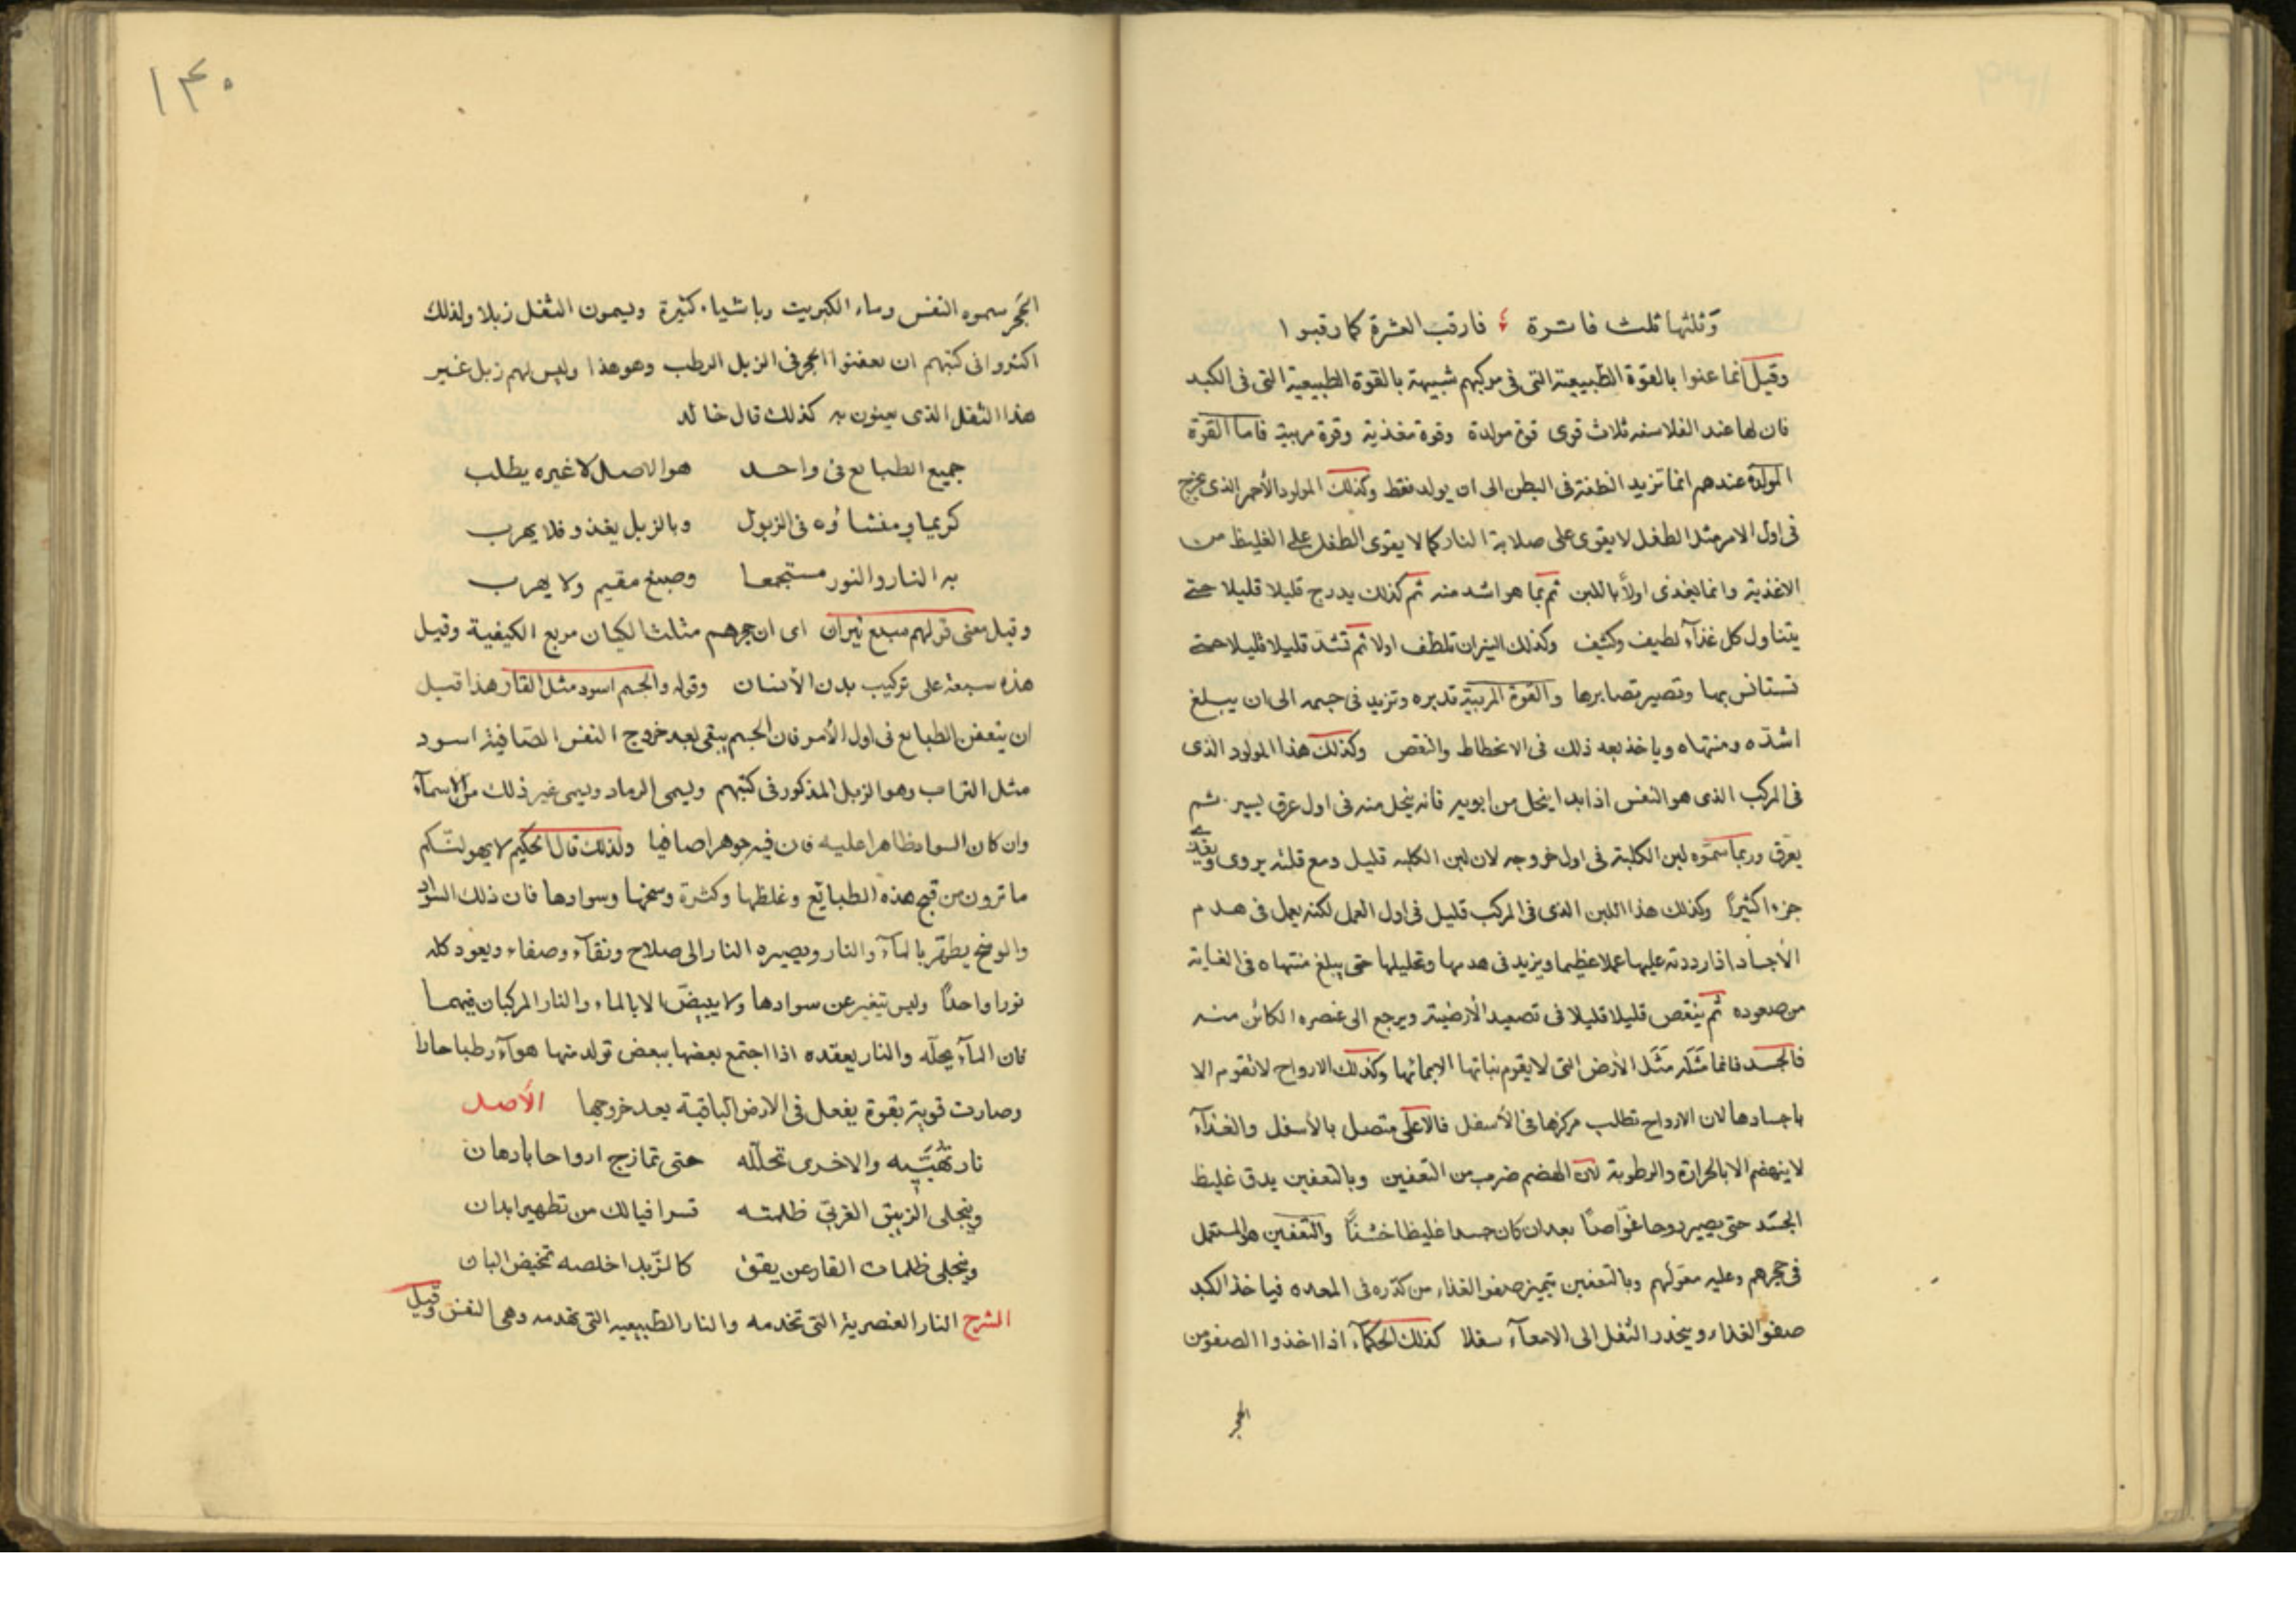 وثلثها ثلث فاترة فارقب العشرة كما رقبوا
وقيل انما عنوا بالقوة الطبيعية التى فى مركبهم شبيهة بالقوة الطبيعية التى فى الكبد
فان لها عند الفلاسفه ثلاث قوى قوة مولدة وقوة مغذية وقوة مربية فاما القوة
المولدة عندهم انما تزيد النطفة فى البطن الى ان يولد فقط وكذلك المولود الأحمر الذى يخرج
فى اول الامر مثل الطفل لا يقوى على صلابة النار كما لا يقوى الطفل على الغليظ من
الاغذية وانما يغذى اولاً باللبن ثم بما هو اشد منه ثم كذلك يدرج قليلا قليلا حتى
يتناول كل غذآء لطيف وكثيف وكذلك النيران تلطف اولا ثم تشد قليلا قليلا حتى
تستانس بها وتصير تصابرها والقوة المربية تدبره وتزيد فى جسمه الى ان يبلغ
اشده ومنتهاه وياخذ بعد ذلك فى الانحطاط والنقص وكذلك هذا المولود الذى
فى المركب الذى هو النفس اذا بدا ينحل من ابويه فانه ينحل منه فى اول عرق يسير ثم
يعرق وربما سموه لبن الكلبة فى اول خروجه لان لبن الكلبه قليل ومع قلته يروى ويغذى
جزءا كثيرًا وكذلك هذا اللبن الذى فى المركب قليل فى اول العمل لكنه يعمل فى هدم
الأجساد اذا رددته عليها عملا عظيما ويزيد فى هدمها وتحليلها حتى يبلغ منتهاه فى الغاية
من صعوده ثم ينقص قليلا قليلا فى تصعيد الأرضية ويرجع الى عنصره الكائن منه
فالجسد فانما مَثَله مَثَل الارض التى لا يقوم نباتها الا بمائها وكذلك الارواح لا تقوم الا
باجسادها لان الارواح تطلب مركزها فى الأسفل فالاعلى متصل بالأسفل والغذآء
لا ينهضم الا بالحرارة والرطوبة لان الهضم ضرب من التعفين وبالتعفين يدق غليظ
الجسد حتى يصير روحا غواصًا بعد ان كان جسدا غليظا خشنًا والتعفين هو المستعمل
فى حجرهم وعليه معولهم وبالتعفين يتميز صفو الغذاء من كدره فى المعده فياخذ الكبد
صفو الغذاء وينحدر الثفل الى الامعآء سفلا كذلك الحكمآء اذا اخذوا الصفو من
الحجر
١٤٠
الحجر سموه النفس وماء الكبريت وباشياء كثيرة ويسمون الثفل زبلا ولذلك
اكثروا فى كتبهم ان يعفنوا الحجر فى الزبل الرطب وهو هذا وليس لهم زبل غير
هذا الثفل الذى يعنون به كذلك قال خالد
جميع الطبايع فى واحد هو الاصل لا غيره يطلب
كريما ومنشاؤه فى الزبول وبالزبل يغذو فلا يهرب
به النار والنور مستجمعا وصبغ مقيم ولا يهرب
وقيل معنى قولهم سبع نيران اى ان حجرهم مثلث الكيان مربع الكيفية وقيل
هذه سبعة على تركيب بدن الأنسان وقوله والجسم اسود مثل القار هذا قبل
ان يتعفن الطبايع فى اول الأمر فان الجسم يبقى بعد خروج النفس الصافية اسود
مثل التراب وهو الزبل المذكور فى كتبهم ويسمى الرماد ويسمى غير ذلك من الاسمآء
وان كان السواد ظاهرا عليه فان فيه جوهرا صافيا ولذلك قال الحكيم لا يهولنّكم
ما ترون من قبح هذه الطبايع وغلظها وكثرة وسخها وسوادها فان ذلك السواد
والوسخ يطهر بالمآء والنار ويصيره النار الى صلاح ونقآء وصفاء ويعود كله
نورا واحدًا وليس تتغير عن سوادها ولا يبيضّ الا بالماء والنار المركبان فيهما
فان المآء يحله والنار يعقده اذا اجتمع بعضها ببعض تولد منها هوآء رطبا حارا
وصارت قوية بقوة يفعل فى الارض الباقية بعد خروجها الأصل
نار تهبّيه والاخرى تحلله حتى تمازج ارواحا بادهان
وينجلى الزيبق الغربى ظلمته قسرا فيالك من تطهير ابدان
وينجلى ظلمات القار عن يقق كالزبد اخلصه تمخيض البان
الشرح النار العنصرية التى تخدمه والنار الطبيعيه التى تخدمه وهى النفس وقيل